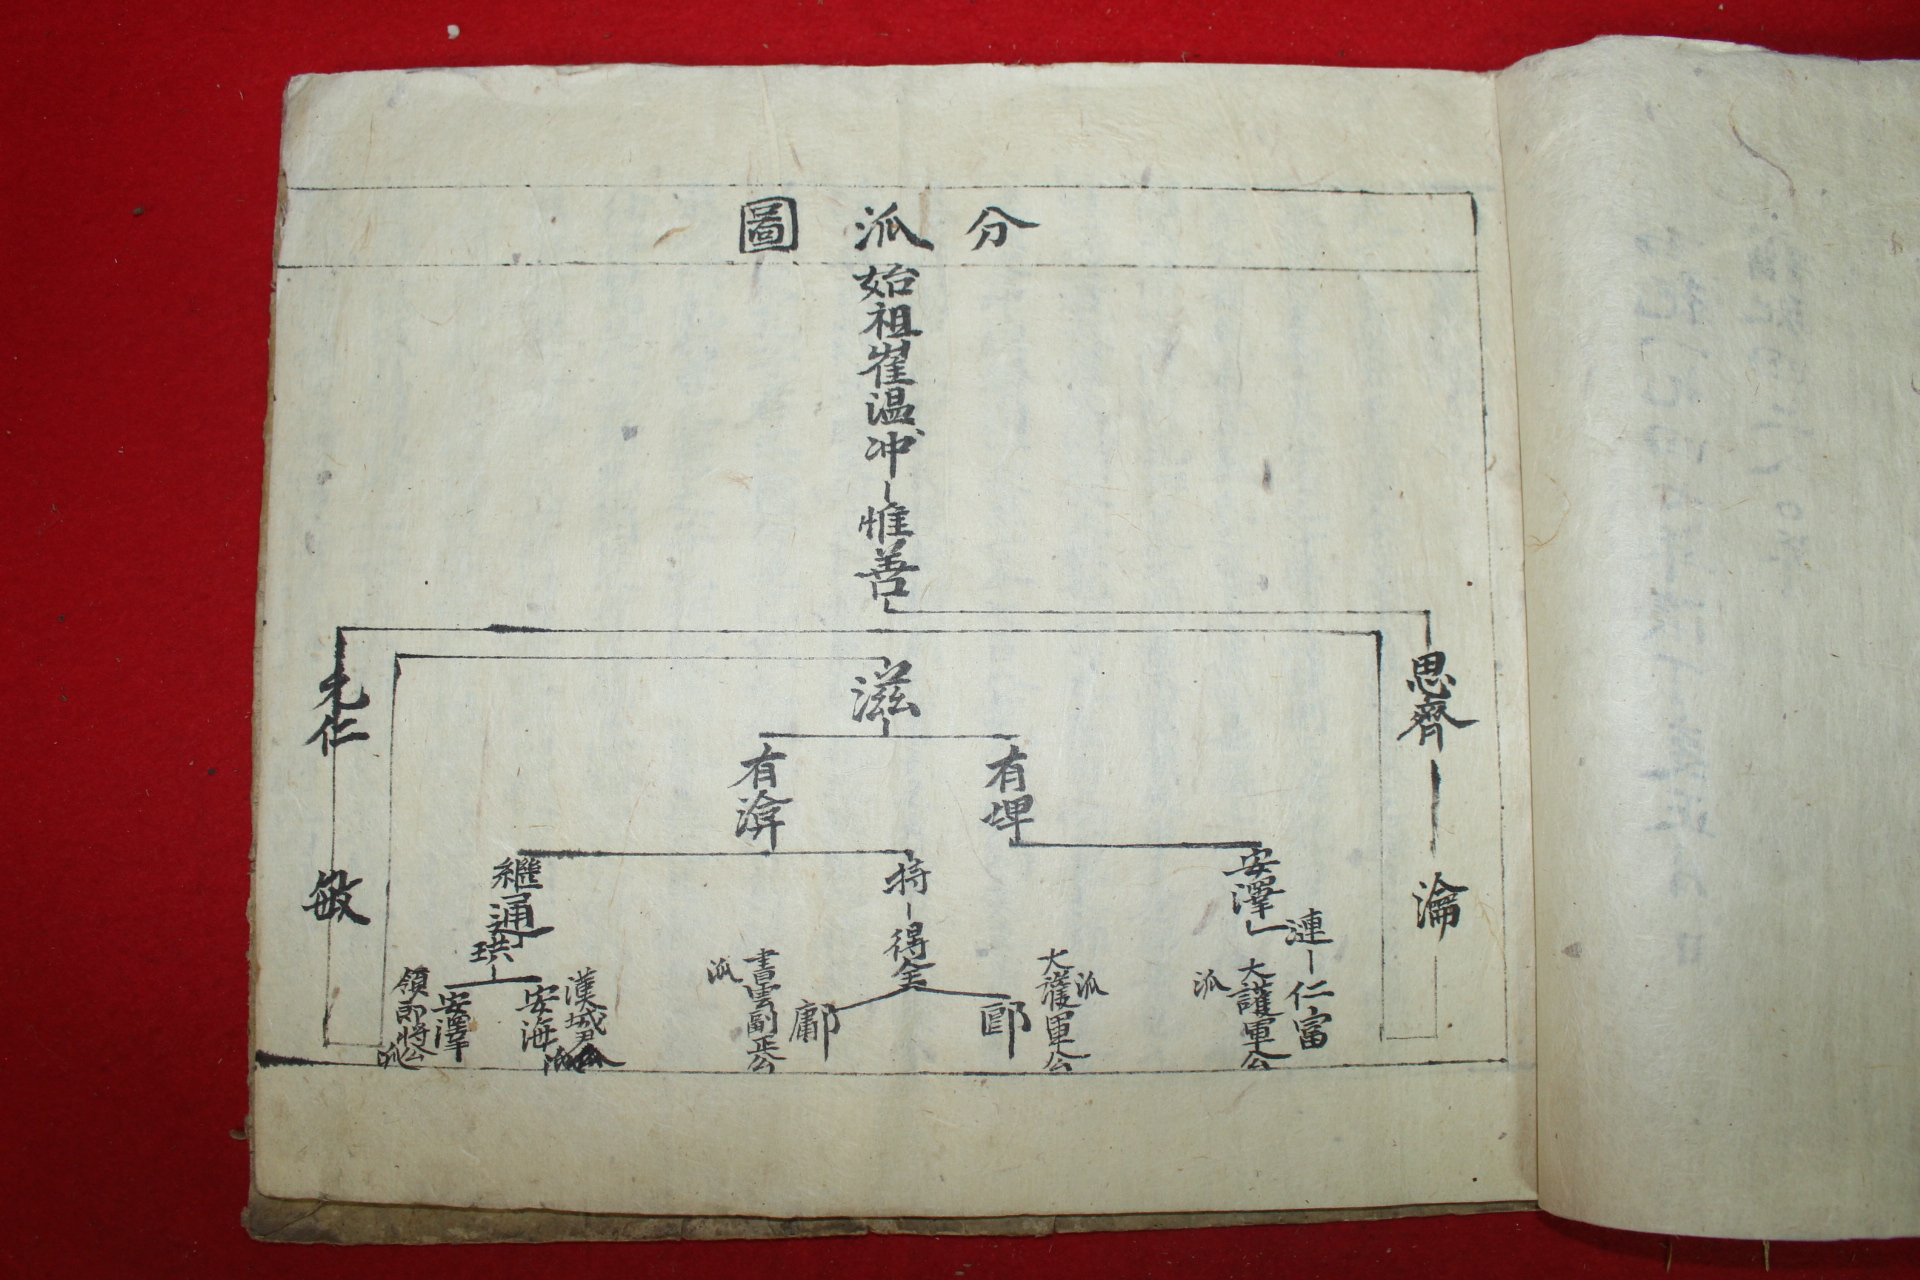 分派圖
始祖崔温冲
惟善
思齊
瀹
元仁
敏
滋
有
有
安澤
漣
仁富
大護軍公
派
得全
大護軍公
派
鄘
書雲副正公
派
繼通
珙
安海
漢城尹公
派
安澤
領郎將公
派